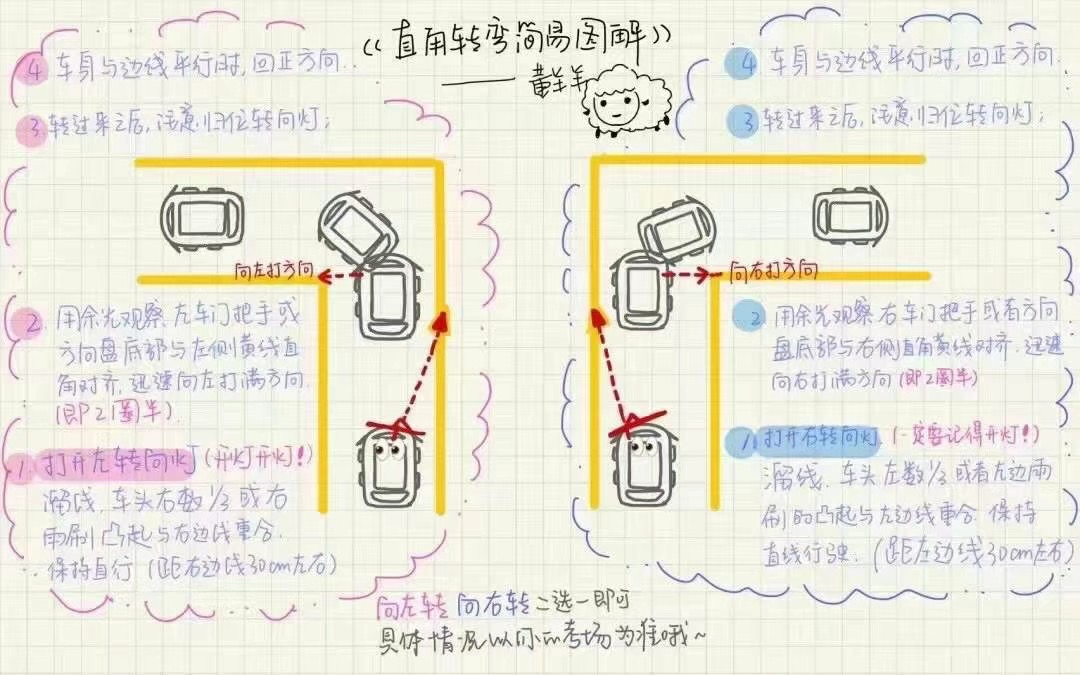 《直角转弯简易图解》
——黄羊羊
4 车身与边线平行时,回正方向.
3. 转过来之后,注意归位转向灯;
向左打方向
2. 用余光观察左车门把手或
方向盘底部与左侧黄线直
角对齐,迅速向左打满方向.
(即2圈半).
1. 打开左转向灯 (开灯开灯!)
溜线,车头右数1/3或右
雨刷凸起与右边线重合.
保持直行 (距右边线30cm左右)
4 车身与边线平行时,回正方向.
3 转过来之后,注意归位转向灯;
向右打方向
2 用余光观察右车门把手或者方向
盘底部与右侧直角黄线对齐.迅速
向右打满方向 (即2圈半)
1. 打开右转向灯 (一定要记得开灯!)
溜线.车头左数1/3或者左边雨
刷的凸起与左边线重合.保持
直线行驶. (距左边线30cm左右)
向左转 向右转 二选一即可
具体情况以你的考场为准哦~